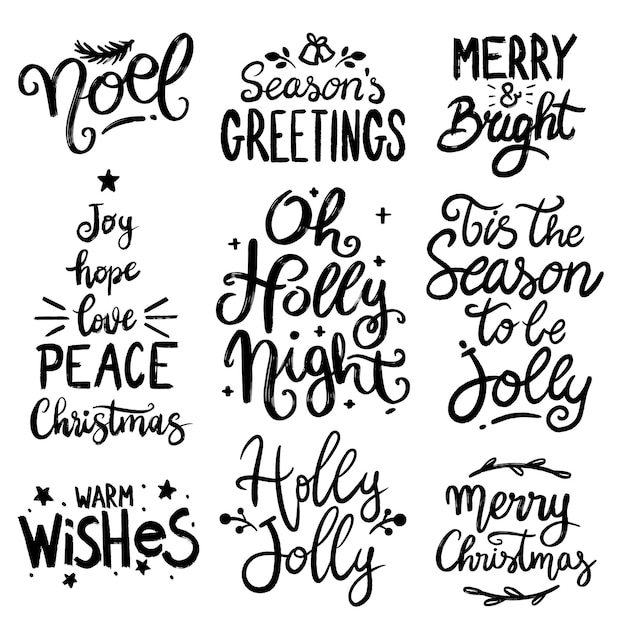 Noel
Season's
GREETINGS
MERRY
&
Bright
Joy
hope
love
PEACE
Christmas
Oh
Holly
Night
Tis the
Season
to be
Jolly
WARM
WiSHeS
Holly
Jolly
Merry
Christmas